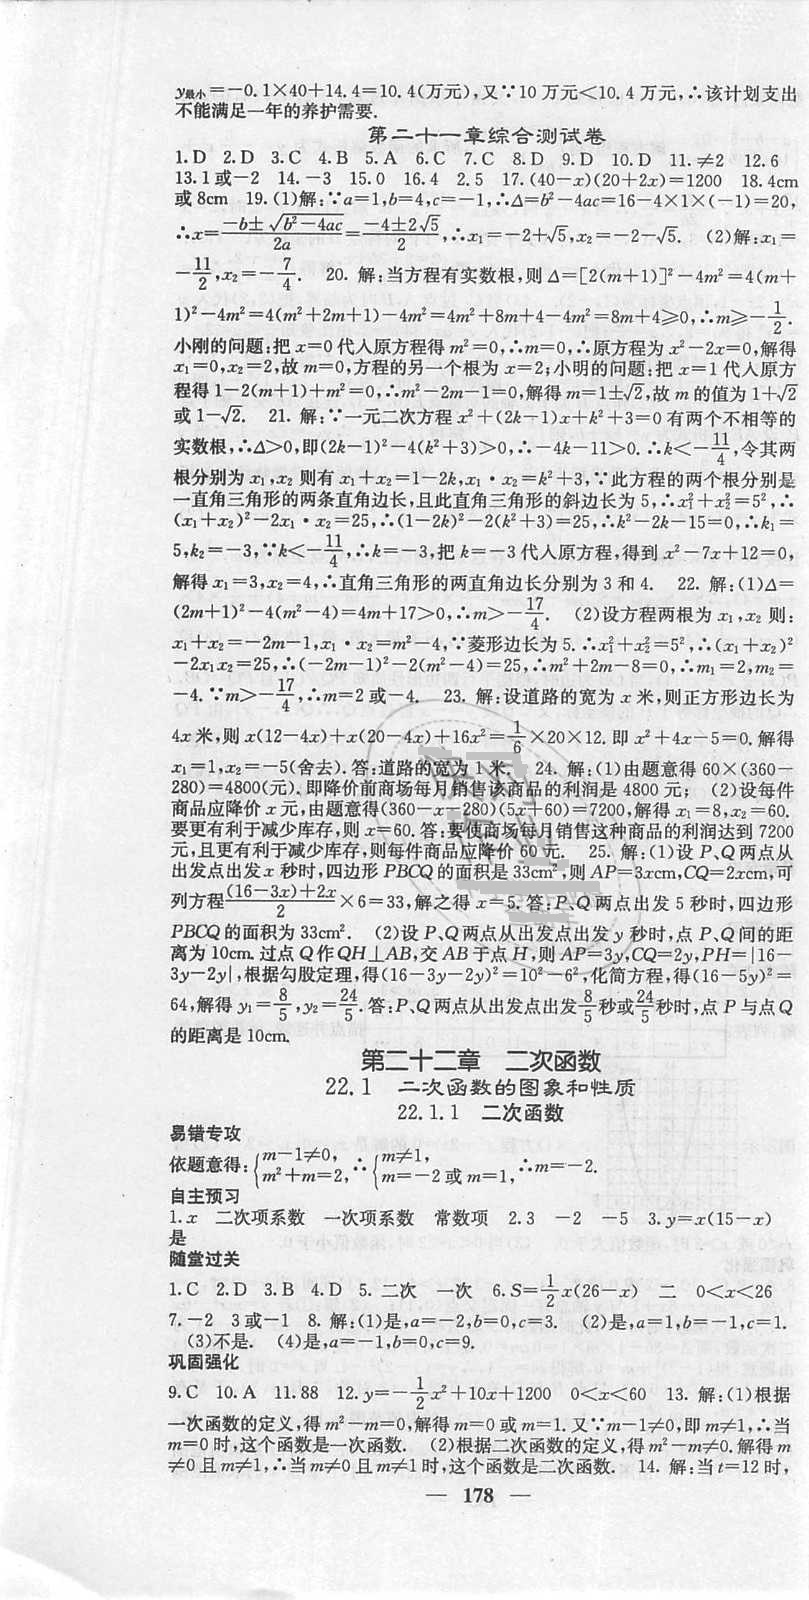 y最小=-0.1×40+14.4=10.4(万元),又∵10万元<10.4万元,∴该计划支出
不能满足一年的养护需要.
第二十一章综合测试卷
1.D 2.D 3.C 4.B 5.A 6.C 7.C 8.D 9.D 10.D 11.≠2 12.6
13.1或-2 14.-3 15.0 16.4 2.5 17.(40-x)(20+2x)=1200 18.4cm
或8cm 19.(1)解:∵a=1,b=4,c=-1,∴Δ=b²-4ac=16-4×1×(-1)=20,
∴x=\frac{-b±√(b²-4ac)}{2a}=\frac{-4±2√5}{2},∴x₁=-2+√5,x₂=-2-√5. (2)解:x₁=
-\frac{11}{2},x₂=-\frac{7}{4}. 20.解:当方程有实数根,则Δ=[2(m+1)]²-4m²=4(m+
1)²-4m²=4(m²+2m+1)-4m²=4m²+8m+4-4m²=8m+4≥0,∴m≥-\frac{1}{2}.
小刚的问题:把x=0代入原方程得m²=0,∴m=0,∴原方程为x²-2x=0,解得
x₁=0,x₂=2,故m=0,方程的另一个根为x=2;小明的问题:把x=1代入原方
程得1-2(m+1)+m²=0,∴m²-2m-1=0,解得m=1±√2,故m的值为1+√2
或1-√2. 21.解:∵一元二次方程x²+(2k-1)x+k²+3=0有两个不相等的
实数根,∴Δ>0,即(2k-1)²-4(k²+3)>0,∴-4k-11>0.∴k<-\frac{11}{4},令其两
根分别为x₁,x₂则有x₁+x₂=1-2k,x₁·x₂=k²+3,∵此方程的两个根分别是
一直角三角形的两条直角边长,且此直角三角形的斜边长为5,∴x₁²+x₂²=5²,∴
(x₁+x₂)²-2x₁·x₂=25,∴(1-2k)²-2(k²+3)=25,∴k²-2k-15=0,∴k₁=
5,k₂=-3,∵k<-\frac{11}{4},∴k=-3,把k=-3代入原方程,得到x²-7x+12=0,
解得x₁=3,x₂=4,∴直角三角形的两直角边长分别为3和4. 22.解:(1)Δ=
(2m+1)²-4(m²-4)=4m+17>0,∴m>-\frac{17}{4}. (2)设方程两根为x₁,x₂则:
x₁+x₂=-2m-1,x₁·x₂=m²-4,∵菱形边长为5.∴x₁²+x₂²=5²,∴(x₁+x₂)²
-2x₁x₂=25,∴(-2m-1)²-2(m²-4)=25,∴m²+2m-8=0,∴m₁=2,m₂=
-4.∵m>-\frac{17}{4},∴m=2或-4. 23.解:设道路的宽为x米,则正方形边长为
4x米,则x(12-4x)+x(20-4x)+16x²=\frac{1}{6}×20×12.即x²+4x-5=0.解得
x₁=1,x₂=-5(舍去).答:道路的宽为1米. 24.解:(1)由题意得60×(360-
280)=4800(元).即降价前商场每月销售该商品的利润是4800元; (2)设每件
商品应降价x元,由题意得(360-x-280)(5x+60)=7200,解得x₁=8,x₂=60.
要更有利于减少库存,则x=60.答:要使商场每月销售这种商品的利润达到7200
元,且更有利于减少库存,则每件商品应降价60元. 25.解:(1)设P、Q两点从
出发点出发x秒时,四边形PBCQ的面积是33cm²,则AP=3xcm,CQ=2xcm,可
列方程\frac{(16-3x)+2x}{2}×6=33,解之得x=5.答:P、Q两点出发5秒时,四边形
PBCQ的面积为33cm². (2)设P、Q两点从出发点出发y秒时,点P、Q间的距
离为10cm.过点Q作QH⊥AB,交AB于点H,则AP=3y,CQ=2y,PH=|16-
3y-2y|,根据勾股定理,得(16-3y-2y)²=10²-6²,化简方程,得(16-5y)²=
64,解得y₁=\frac{8}{5},y₂=\frac{24}{5}.答:P、Q两点从出发点出发\frac{8}{5}秒或\frac{24}{5}秒时,点P与点Q
的距离是10cm.
第二十二章 二次函数
22.1 二次函数的图象和性质
22.1.1 二次函数
易错专攻
依题意得:{m-1≠0, m²+m=2, ∴{m≠1, m=-2或m=1, ∴m=-2.
自主预习
1.x 二次项系数 一次项系数 常数项 2.3 -2 -5 3.y=x(15-x)
是
随堂过关
1.C 2.D 3.B 4.D 5.二次 一次 6.S=\frac{1}{2}x(26-x) 二 0<x<26
7.-2 3或-1 8.解:(1)是,a=-2,b=0,c=3. (2)是,a=1,b=-1,c=1.
(3)不是. (4)是,a=-1,b=0,c=9.
巩固强化
9.C 10.A 11.88 12.y=-\frac{1}{2}x²+10x+1200 0<x<60 13.解:(1)根据
一次函数的定义,得m²-m=0,解得m=0或m=1.又∵m-1≠0,即m≠1,∴当
m=0时,这个函数是一次函数. (2)根据二次函数的定义,得m²-m≠0.解得m
≠0且m≠1,∴当m≠0且m≠1时,这个函数是二次函数. 14.解:当t=12时,
— 178 —